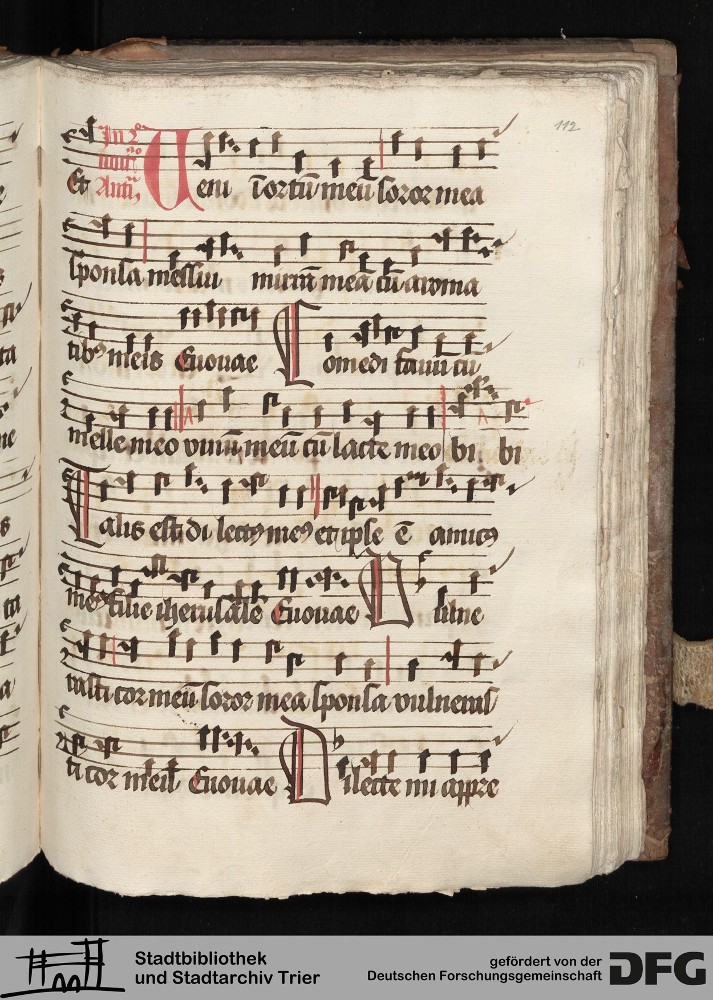 112
In 2º
noct̄
Et Antī Veni ī ortū meū soror mea
sponsa messui mirrā meā cū aroma
tibꝰ meis Euouae Comedi fauū cū
melle meo vinū meū cū lacte meo bi bi
Talis est di lectꝰ meꝰ et ipse ē amicꝰ
meꝰ filie iherusalē Euouae Vulne
rasti cor meū soror mea sponsa vulneras
ti cor Euouae Dilecte mi appre
Stadtbibliothek
und Stadtarchiv Trier
gefördert von der
Deutschen Forschungsgemeinschaft DFG